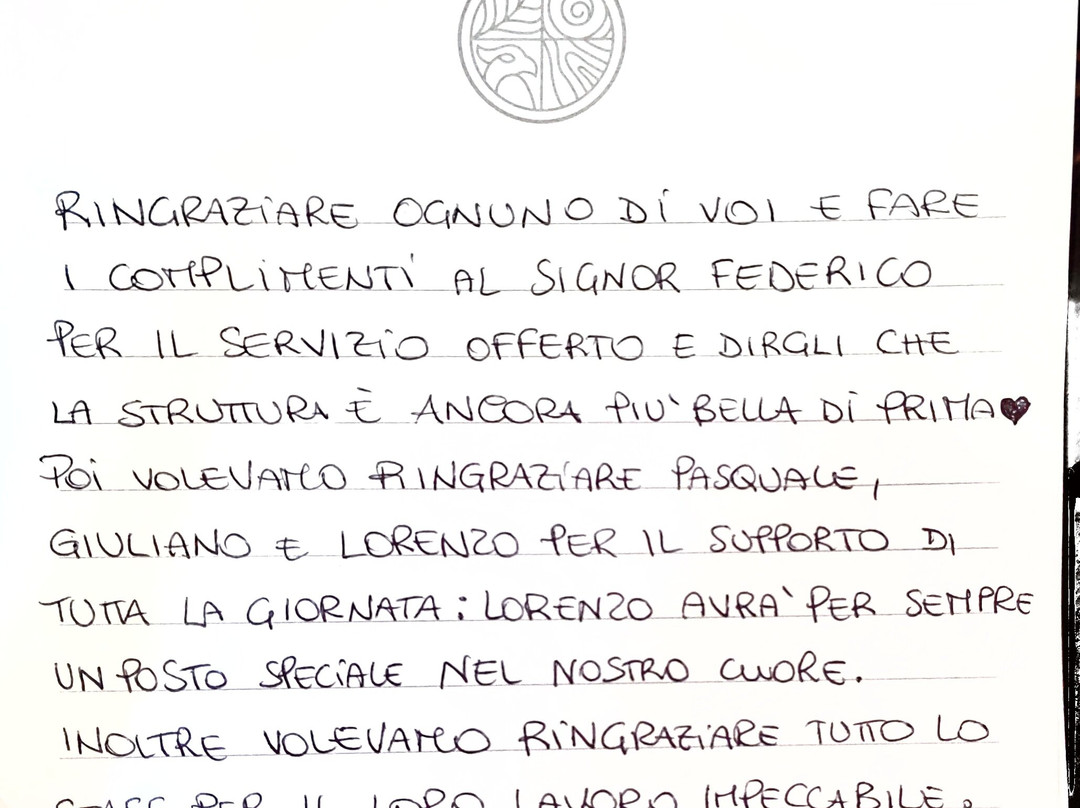 RINGRAZIARE OGNUNO DI VOI E FARE
I COMPLIMENTI AL SIGNOR FEDERICO
PER IL SERVIZIO OFFERTO E DIRGLI CHE
LA STRUTTURA È ANCORA PIU' BELLA DI PRIMA♥
POI VOLEVAMO RINGRAZIARE PASQUALE,
GIULIANO E LORENZO PER IL SUPPORTO DI
TUTTA LA GIORNATA: LORENZO AVRA' PER SEMPRE
UN POSTO SPECIALE NEL NOSTRO CUORE.
INOLTRE VOLEVAMO RINGRAZIARE TUTTO LO
STAFF PER IL LORO LAVORO IMPECCABILE.